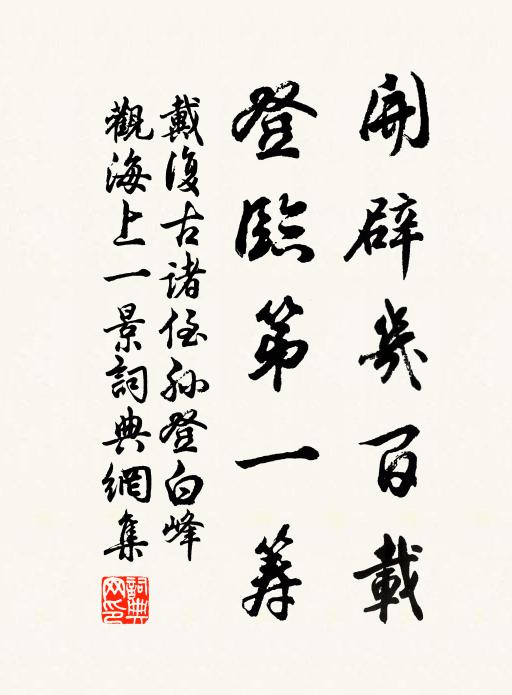 開辟幾百載
登臨第一籌
戴復古諸侄孫登白峰
觀海上一景詞典網集
詞典网印